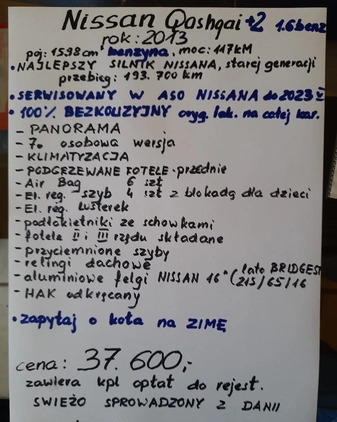 Nissan Qashqai +2 1.6 benz
rok: 2013
poj: 1598 cm³ benzyna, moc: 117 KM
• NAJLEPSZY SILNIK NISSANA, starej generacji
przebieg: 193.700 km
• SERWISOWANY W ASO NISSANA do 2023
• 100% BEZKOLIZYJNY oryg. lak. na całej kar.
- PANORAMA
- 7. osobowa wersja
- KLIMATYZACJA
- PODGRZEWANE FOTELE-przednie
- Air Bag 6 szt
- El. reg. szyb 4 szt z blokadą dla dzieci
- El. reg. lusterek
- podłokietniki ze schowkami
- fotele II i III rzędu składane
- przyciemnione szyby
- relingi dachowe
- aluminiowe felgi NISSAN 16" (lato BRIDGEST
215/65/16
- HAK odkręcany
• zapytaj o koła na ZIMĘ
cena: 37.600,-
zawiera kpl opłat do rejest.
SWIEŻO SPROWADZONY Z DANII